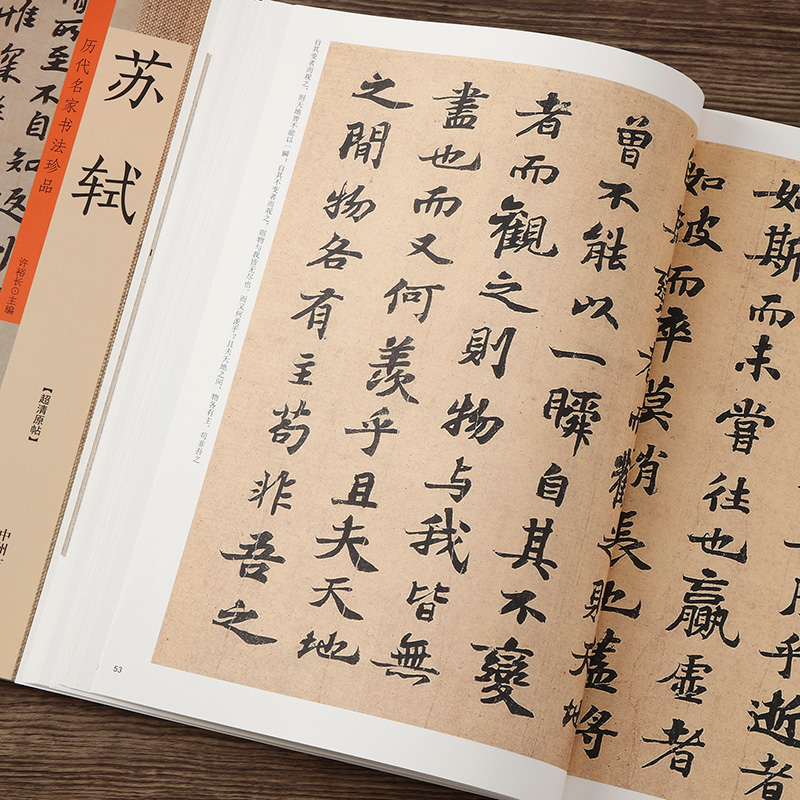 苏轼
历代名家书法珍品
许裕长◎主编
【超清原帖】
中州
所至不自
知返
乎逝者
如斯而未嘗往也贏虛者
如彼而卒莫消長也盖將
曾不能以一瞬自其不變
者而觀之則物与我皆無
盡也而又何羨乎且夫天地
之間物各有主苟非吾之
自其变者而观之，则天地曾不能以一瞬；自其不变者而观之，则物与我皆无尽也，而又何羡乎？且夫天地之间，物各有主，苟非吾之
53